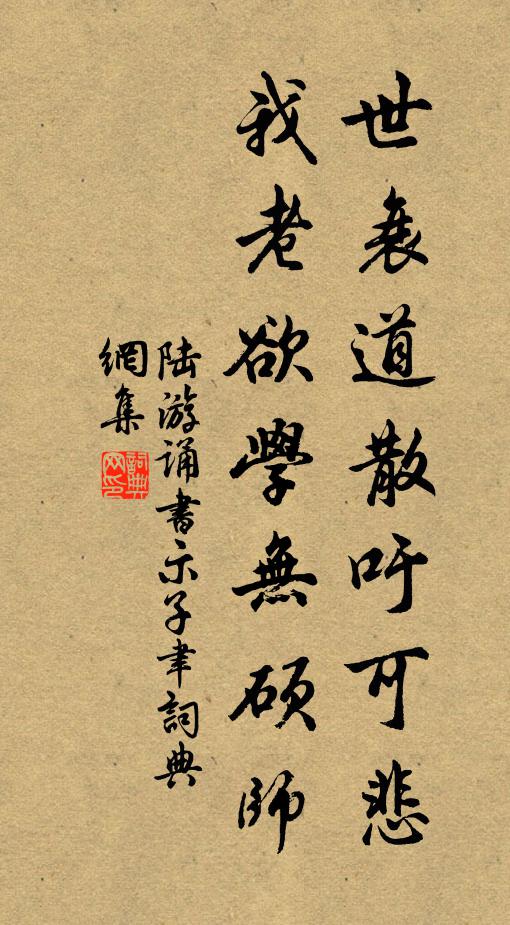 世衰道散吁可悲
我老欲學無碩師
陆游誦書示子聿詞典
網集
詞典
网印